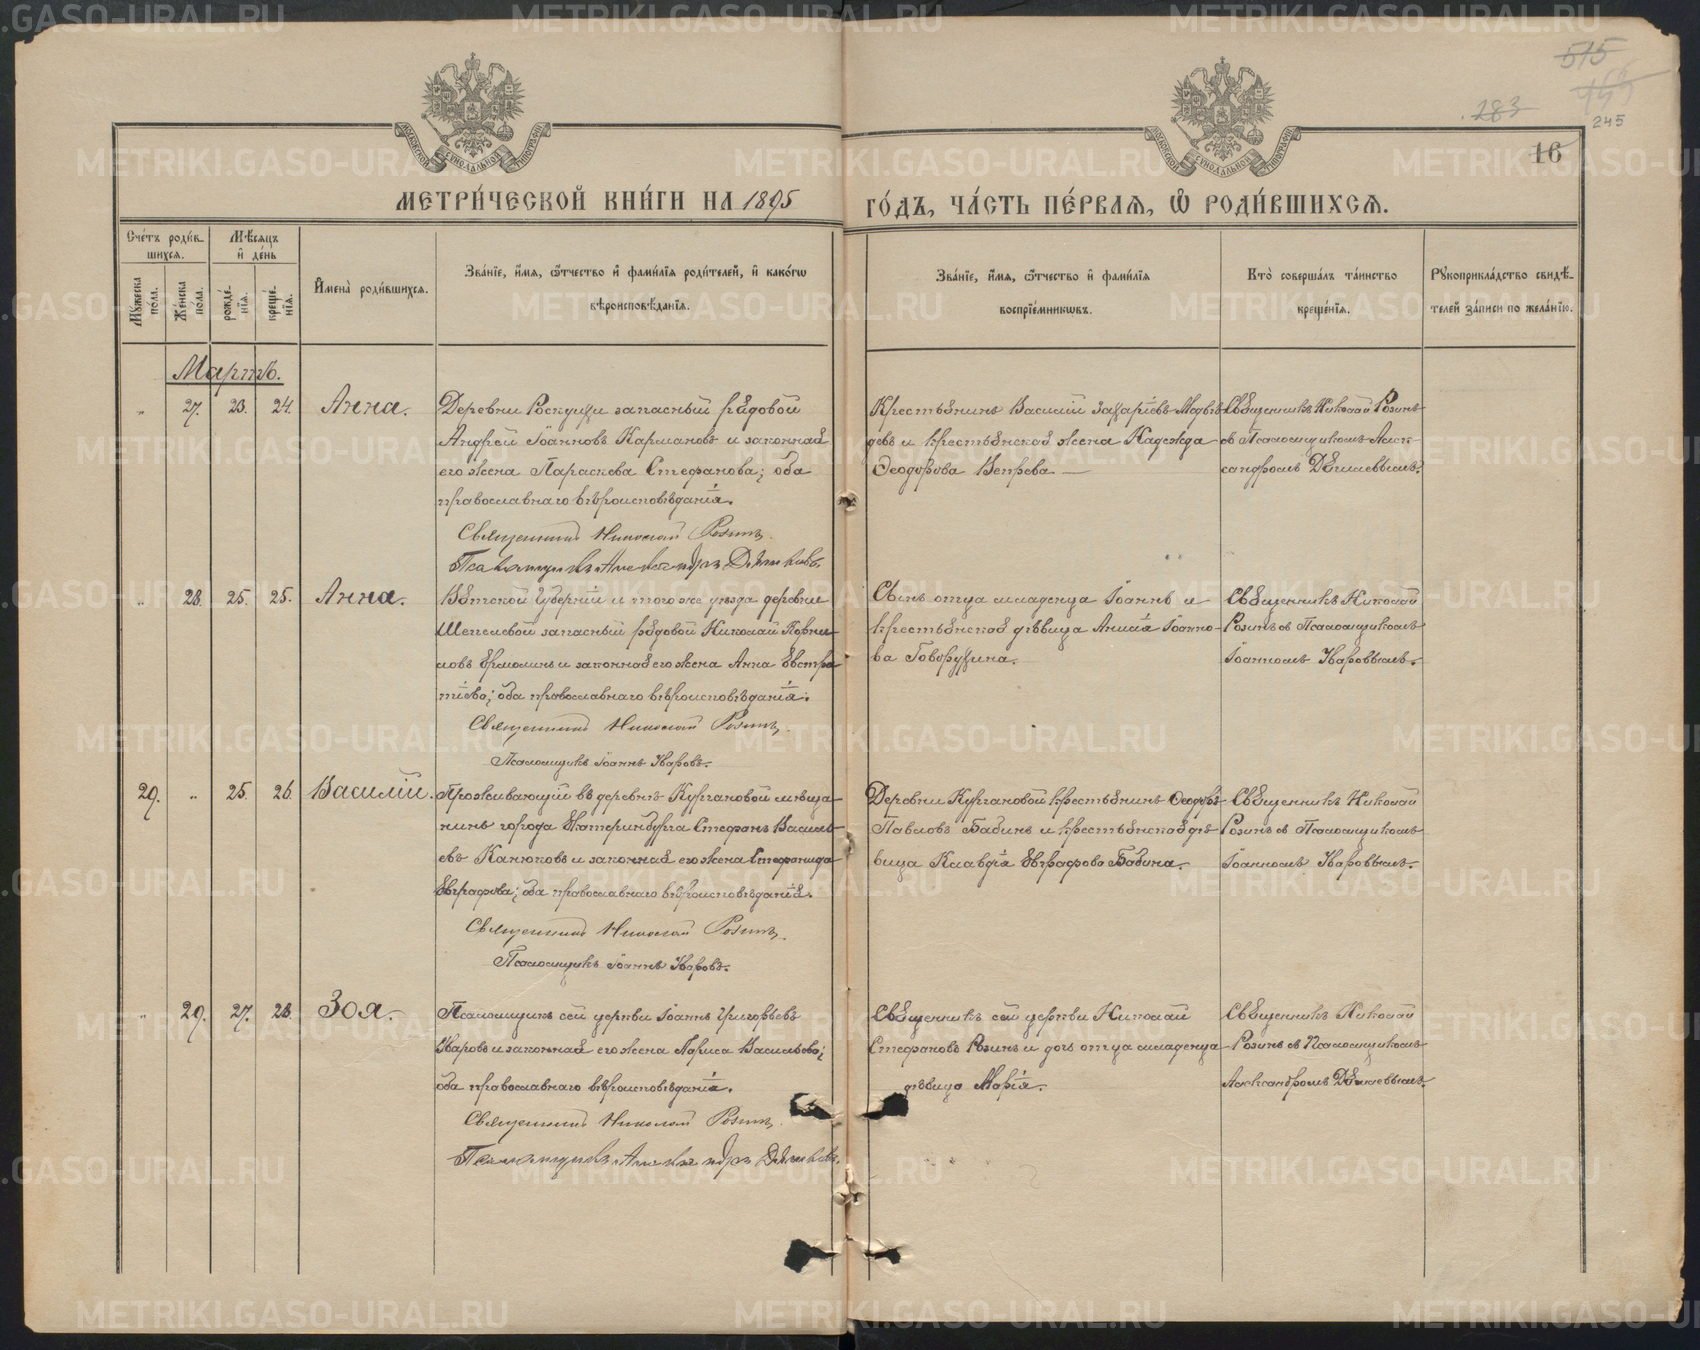 515
283
245
16
МОСКОВСКОЙ СѴНОДАЛЬНОЙ ТИПОГРАФІИ
МОСКОВСКОЙ СѴНОДАЛЬНОЙ ТИПОГРАФІИ
МЕТРИ́ЧЕСКОЙ КНИ́ГИ НА 1895 ГО́ДЪ, ЧА́СТЬ ПЕ́РВАѦ, Ѡ РОДИ́ВШИХСѦ.
Сче́тъ роди́в-
шихсѧ.
Мꙋ́жеска по́ла.
Же́нска по́ла.
Мѣ́сѧцъ
и҆ де́нь
рожде́нїѧ.
креще́нїѧ.
И҆мена̀ роди́вшихсѧ.
Зва́нїе, и҆́мѧ, ѻ҆́тчество и҆ фами́лїѧ роди́телей, и҆ како́гѡ
вѣроисповѣ́данїѧ.
Зва́нїе, и҆́мѧ, ѻ҆́тчество и҆ фами́лїѧ
воспрїе́мникѡвъ.
Кто̀ соверша́лъ та́инство
креще́нїѧ.
Рꙋкоприкла́дство свидѣ́-
телей за́писи по жела́нїю.
Мартъ.
„ 27. 23. 24. Анна.
Деревни Роскуихи запасный рядовой
Андрей Іоанновъ Кармановъ и законная
его жена Параскева Стефанова; оба
православнаго вѣроисповѣданія.
Священникъ Николай Розинъ.
Псаломщикъ Александръ
Крестьянинъ Василій Захаріевъ Медвѣ-
девъ и крестьянская жена Надежда
Ѳеодорова Вепрева
Священникъ Николай Розинъ
съ Псаломщикомъ Алек-
сандромъ
„ 28. 25. 25. Анна.
Вятской Губерніи и того же уѣзда деревни
Шепелевой запасный рядовой Николай Корни-
ловъ Ермолинъ и законная его жена Анна Евстра-
тіева; оба православнаго вѣроисповѣданія.
Священникъ Николай Розинъ.
Псаломщикъ Іоаннъ Уваровъ.
Сынъ отца младенца Іоаннъ и
крестьянская дѣвица Аннія Іоанно-
ва Говорухина.
Священникъ Николай
Розинъ съ Псаломщикомъ
Іоанномъ Уваровымъ.
29. „ 25. 26. Василій.
Проживающій въ деревнѣ Кургановой мѣща-
нинъ города Екатеринбурга Стефанъ Василь-
евъ Канюковъ и законная его жена Стефанида
Евграфова; оба православнаго вѣроисповѣданія.
Священникъ Николай Розинъ.
Псаломщикъ Іоаннъ Уваровъ.
Деревни Кургановой крестьянинъ Ѳеодоръ
Павловъ Бабинъ и крестьянская дѣ-
вица Клавдія Евграфова Бабина.
Священникъ Николай
Розинъ съ Псаломщикомъ
Іоанномъ Уваровымъ.
„ 29. 27. 28. Зоя.
Псаломщикъ сей церкви Іоаннъ Григорьевъ
Уваровъ и законная его жена Лариса Васильева;
оба православнаго вѣроисповѣданія.
Священникъ Николай Розинъ.
Псаломщикъ Александръ
Священникъ сей церкви Николай
Стефановъ Розинъ и дочь отца младенца
дѣвица Марія.
Священникъ Николай
Розинъ съ Псаломщикомъ
Александромъ
METRIKI.GASO-URAL.RU